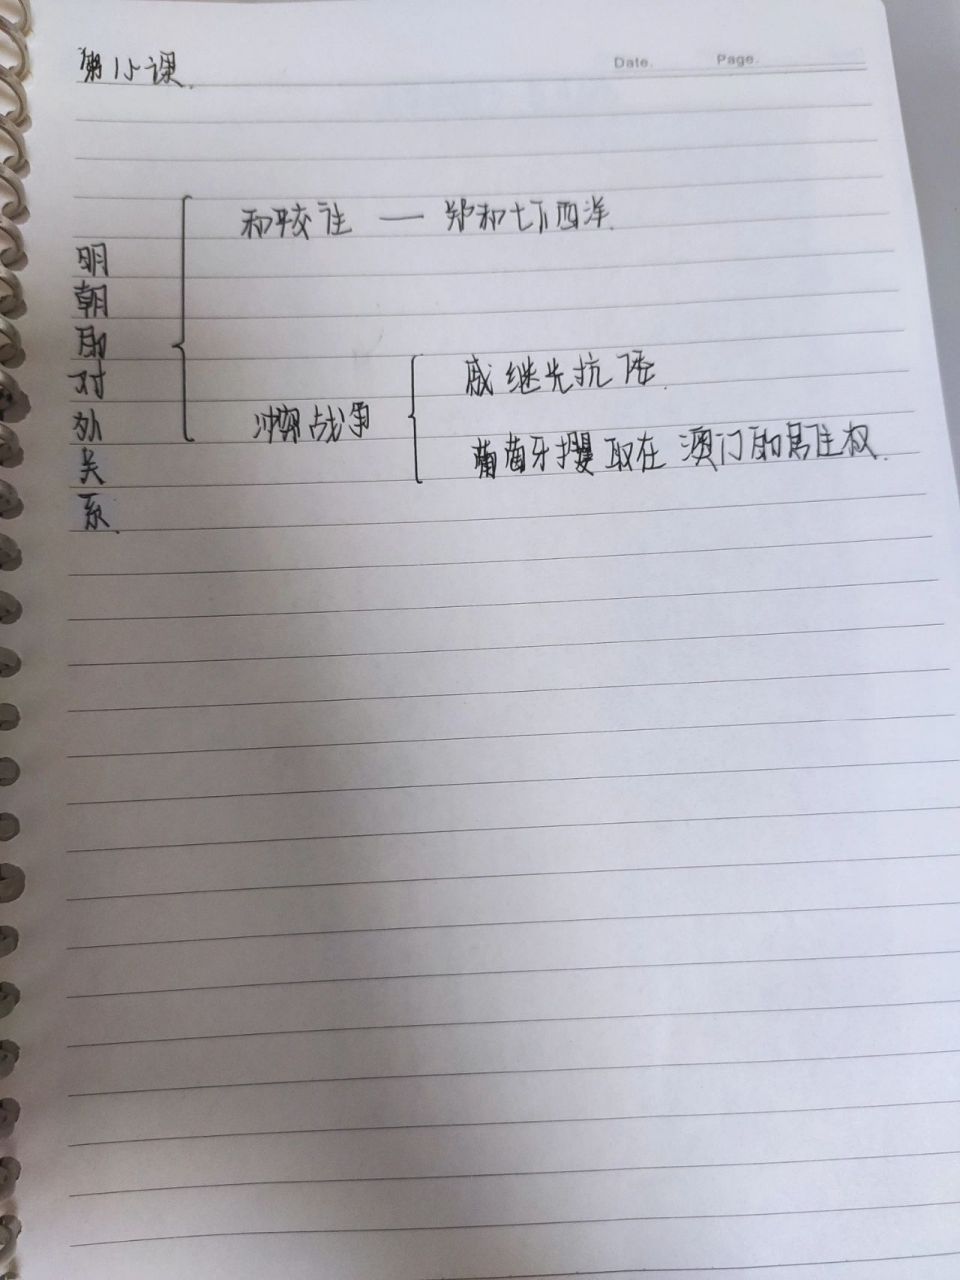 第15课.
Date. Page.
明朝的对外关系.
和平交往 — 郑和七下西洋.
冲突战争
戚继光抗倭.
葡萄牙攫取在澳门的居住权.